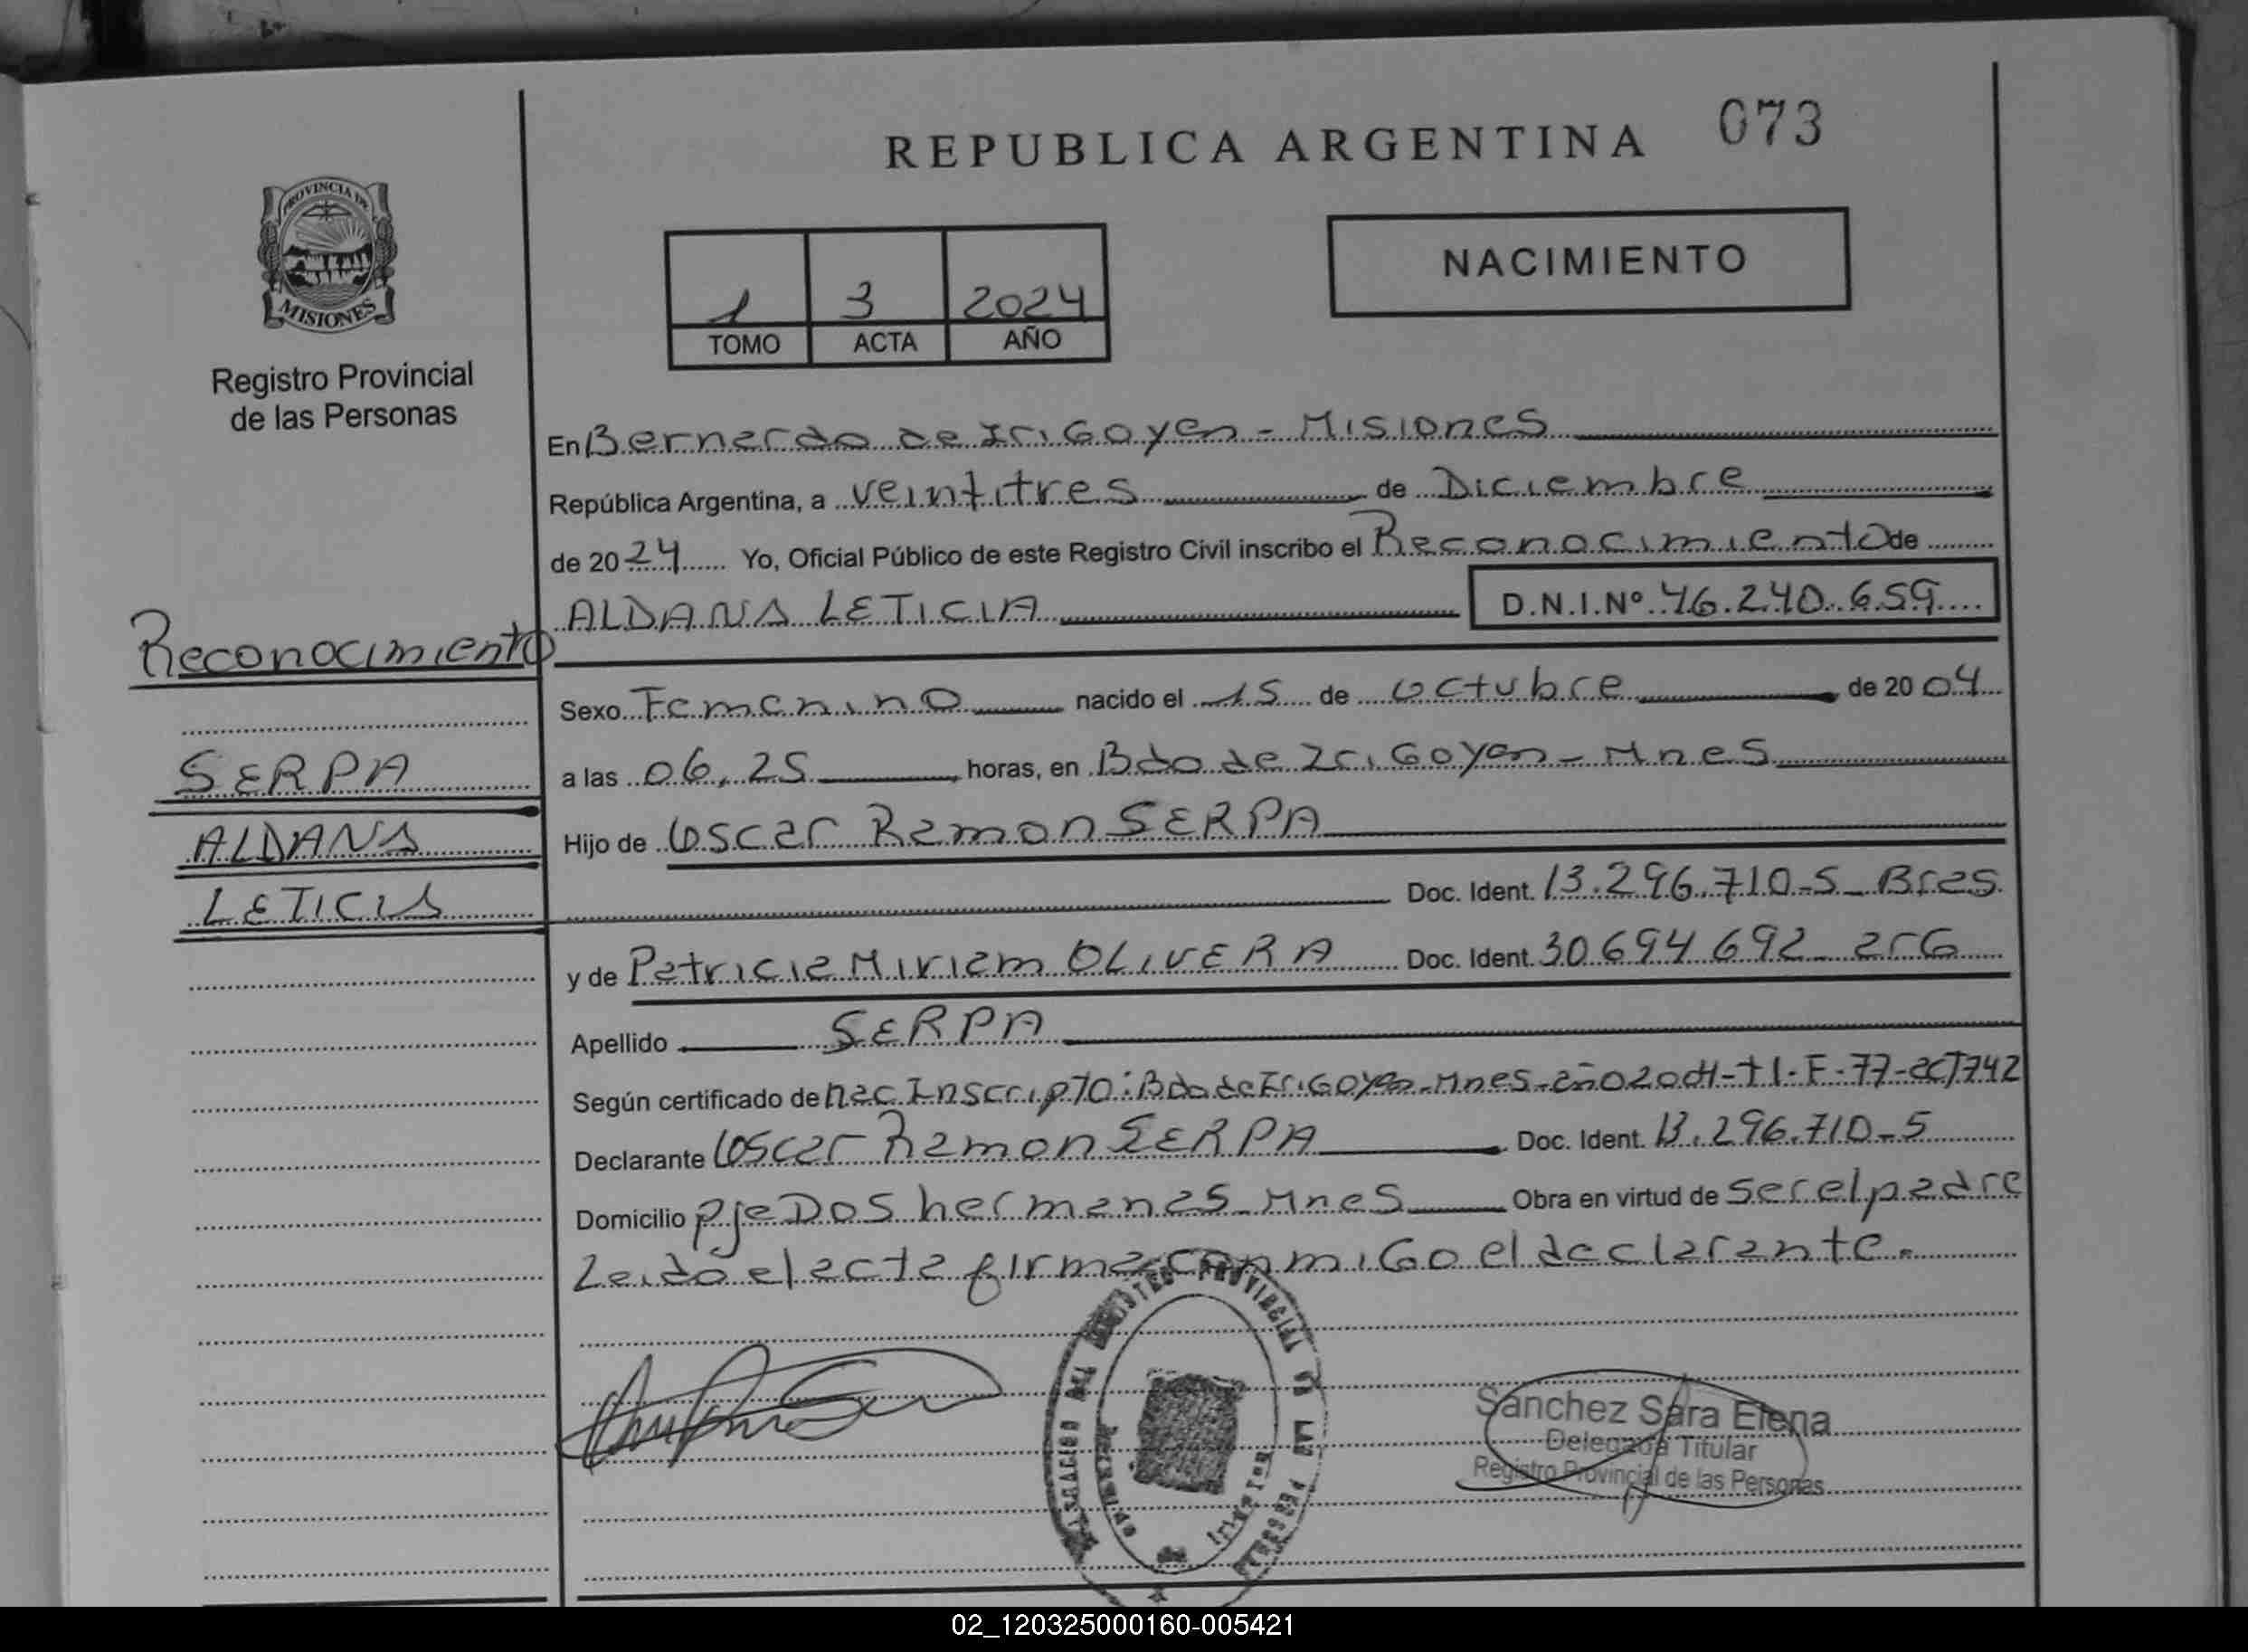 REPUBLICA ARGENTINA 073
PROVINCIA DE
MISIONES
NACIMIENTO
1 3 2024
TOMO ACTA AÑO
Registro Provincial
de las Personas
En Bernardo de Irigoyen - Misiones
República Argentina, a veintitres de Diciembre
de 2024 Yo, Oficial Público de este Registro Civil inscribo el Reconocimiento de
ALDANA LETICIA D.N.I.Nº 46.240.659
Reconocimiento
Sexo Femenino nacido el 15 de Octubre de 2004
SERPA
a las 06,25 horas, en Bdo de Irigoyen - Mnes
ALDANA
Hijo de Oscar Ramon SERPA
LETICIA
Doc. Ident. 13.296.710-5 - Bras
y de Patricia Miriam OLIVERA Doc. Ident. 30694692 - arG
Apellido SERPA
Según certificado de nac Inscripto: Bdo de Irigoyen - Mnes - año 2004 - t 1 - F - 77 - act 742
Declarante Oscar Ramon SERPA Doc. Ident. 13.296.710-5
Domicilio pje Dos hermanas - Mnes Obra en virtud de ser el padre
Leido el acta firma conmigo el declarante.
PROVINCIAL DE LAS PERSONAS
Sanchez Sara Elena
Delegada Titular
Registro Provincial de las Personas
02_120325000160-005421